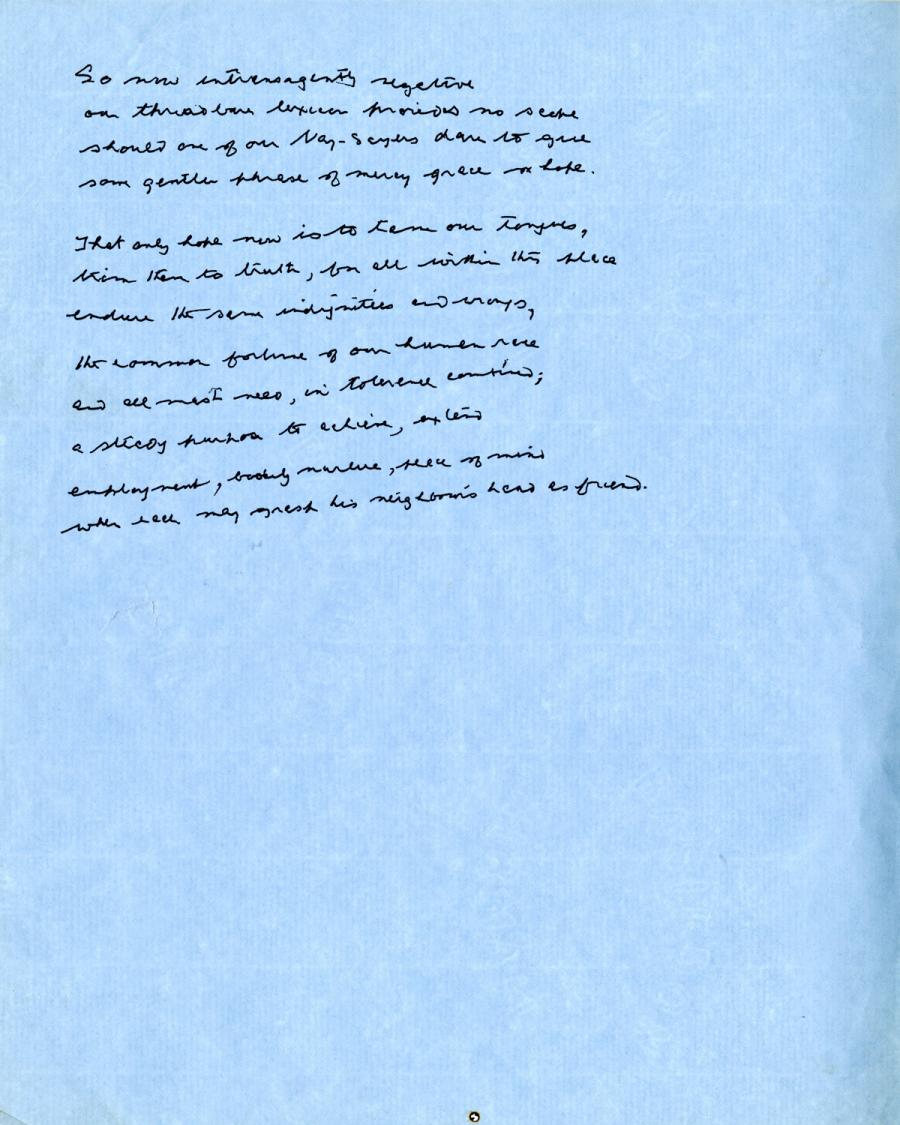 So now intransagently negative
our threadbare lexicon provides no scope
should one of our Nay-Sayers dare to give
some gentler phrase of mercy grace or hope.
That only hope now is to tame our tongues,
trim them to truth, for all within this place
endure the same indignities and wrongs,
the common fortune of our human race
and all must need, in tolerance combined;
a steady purpose to achieve, extend
employment, bodily nurture, peace of mind
when each may grasp his neighbour's hand as friend.